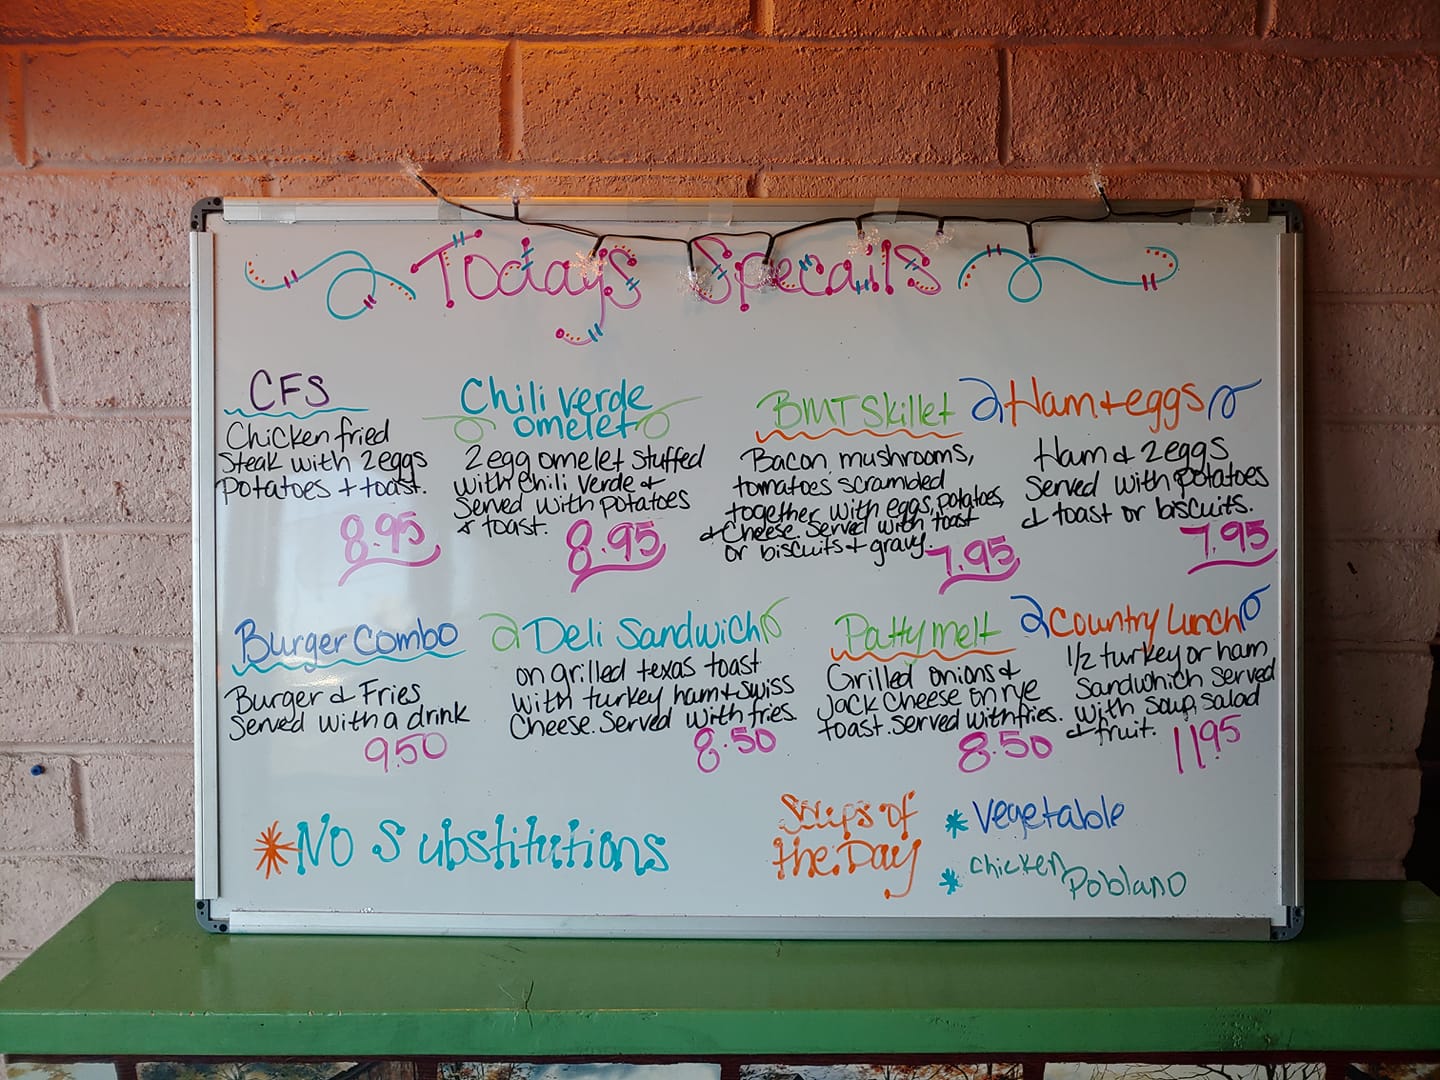 Todays Specails
CFS
Chicken fried
Steak with 2 eggs
Potatoes + toast.
8.95
Chili verde
omelet
2 egg omelet stuffed
with chili verde +
Served with potatoes
& toast.
8.95
BMT Skillet
Bacon, mushrooms,
tomatoes scrambled
together with eggs, potatoes,
& Cheese. Served with toast
or biscuits + gravy.
7.95
Ham + eggs
Ham & 2 eggs
Served with potatoes
& toast or biscuits.
7.95
Burger Combo
Burger & Fries
Served with a drink
9.50
Deli Sandwich
on grilled texas toast
with turkey ham + swiss
Cheese. Served with fries.
8.50
Patty melt
Grilled onions &
Jack Cheese on rye
toast. Served with fries.
8.50
Country Lunch
1/2 turkey or ham
Sandwhich Served
with soup, salad
& fruit.
11.95
*No Substitutions
Soups of
the Day
* Vegetable
* Chicken Poblano